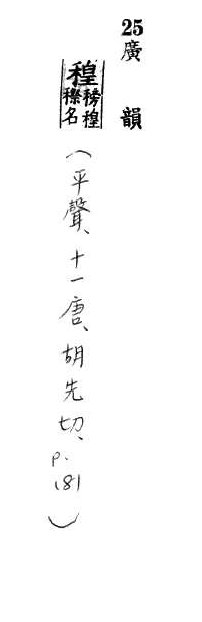 25 廣韻
䅣䅭䅣穄名
(平聲、十一唐、胡先切、p.181)